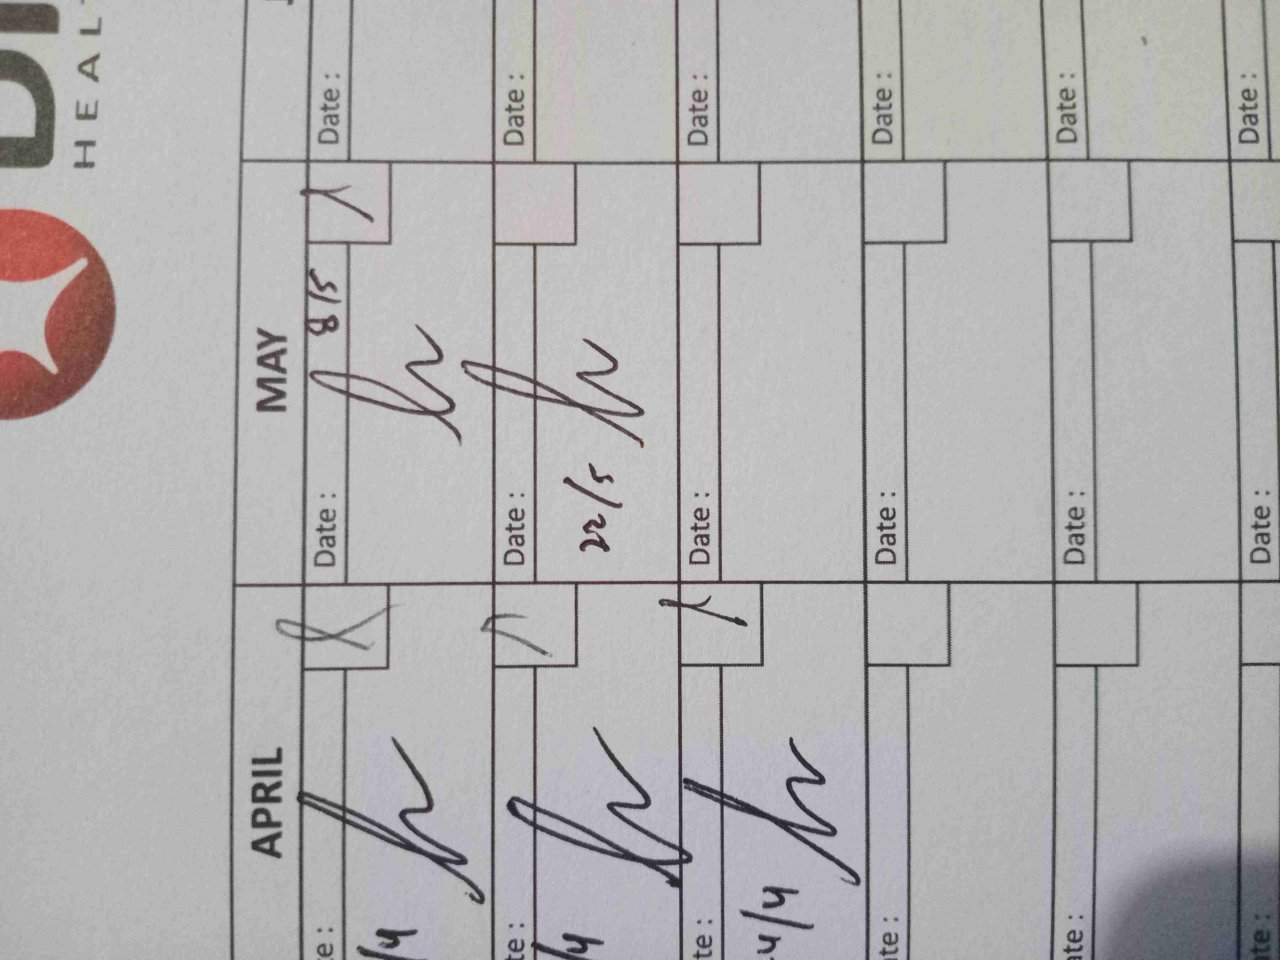 HEAL
APRIL
MAY
te :
/4
Date :
8/5
Date :
te :
/4
Date :
22/5
Date :
te :
24/4
Date :
Date :
te :
Date :
Date :
ate :
Date :
Date :
ate :
Date :
Date :